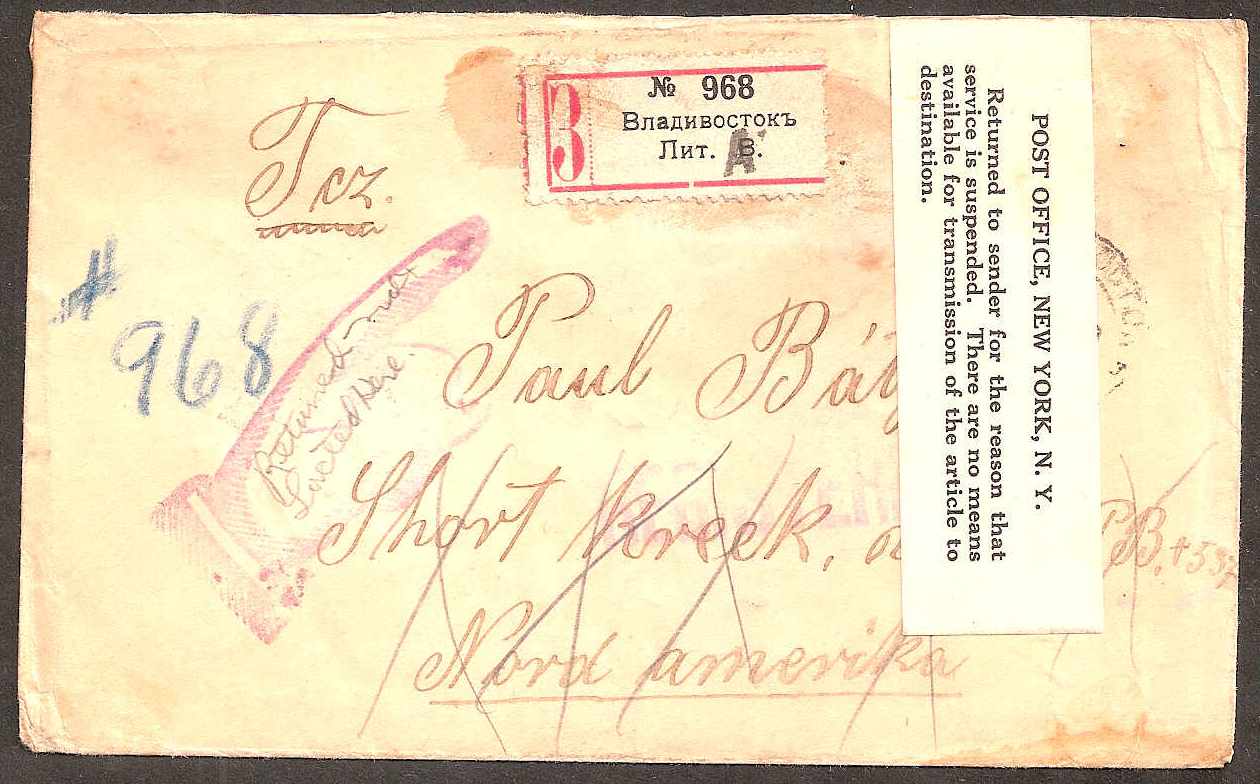 № 968
3
Владивостокъ
Лит. В.
А
POST OFFICE, NEW YORK, N. Y.
Returned to sender for the reason that
service is suspended. There are no means
available for transmission of the article to
destination.
Tcz.
# 968
Returned
Here.
Paul
Short Kreek,
PB. +537
Nord amerika